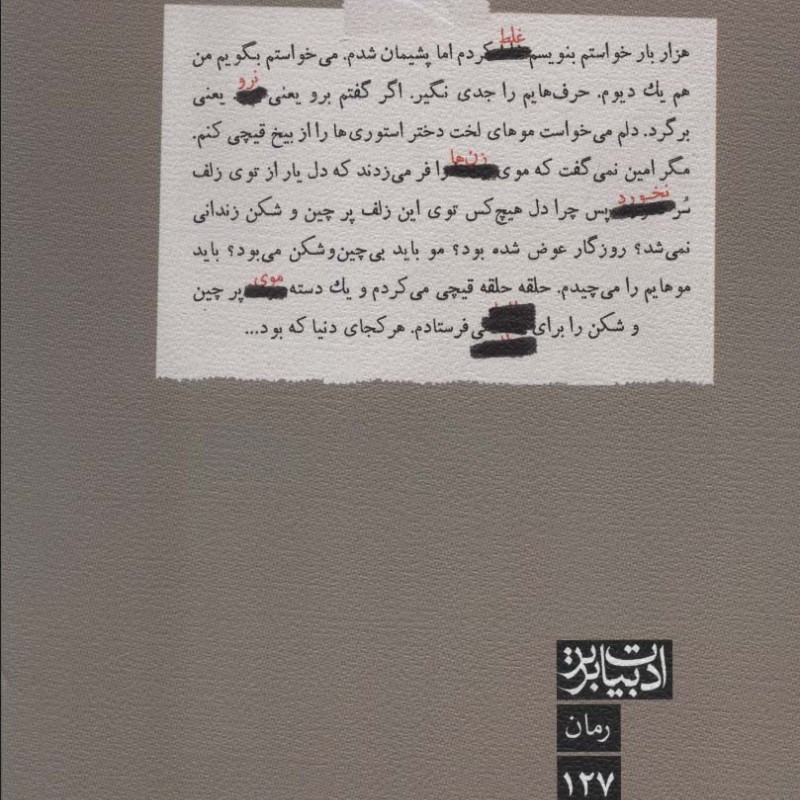 هزار بار خواستم بنویسم غلط کردم اما پشیمان شدم. می‌خواستم بگویم من
هم یك دیوم. حرف‌هایم را جدی نگیر. اگر گفتم برو یعنی نرو. یعنی
برگرد. دلم می‌خواست موهای لخت دختر استوری‌ها را از بیخ قیچی کنم.
مگر امین نمی‌گفت که موی زن‌ها را فر می‌زدند که دل یار از توی زلف
سُر نخورد پس چرا دل هیچ‌کس توی این زلف پر چین و شکن زندانی
نمی‌شد؟ روزگار عوض شده بود؟ مو باید بی‌چین‌وشکن می‌بود؟ باید
موهایم را می‌چیدم. حلقه حلقه قیچی می‌کردم و یك دسته موی پر چین
و شکن را برای می‌فرستادم. هرکجای دنیا که بود...
ادبیات برتر
رمان
۱۲۷